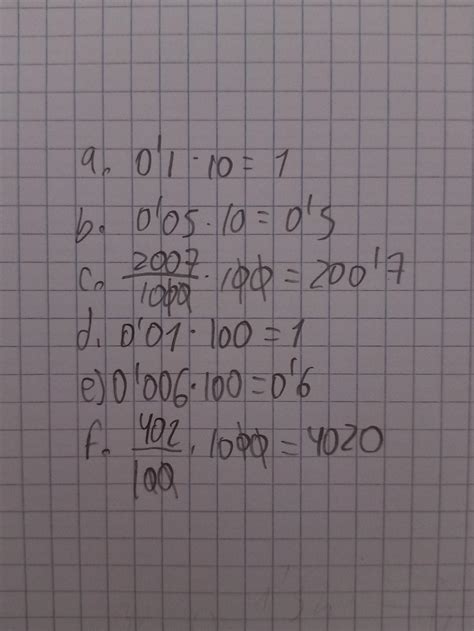 a. 0'1 · 10 = 1
b. 0'05 · 10 = 0'5
c. 2007/1000 · 100 = 200'7
d. 0'01 · 100 = 1
e) 0'006 · 100 = 0'6
f. 402/100 · 1000 = 4020